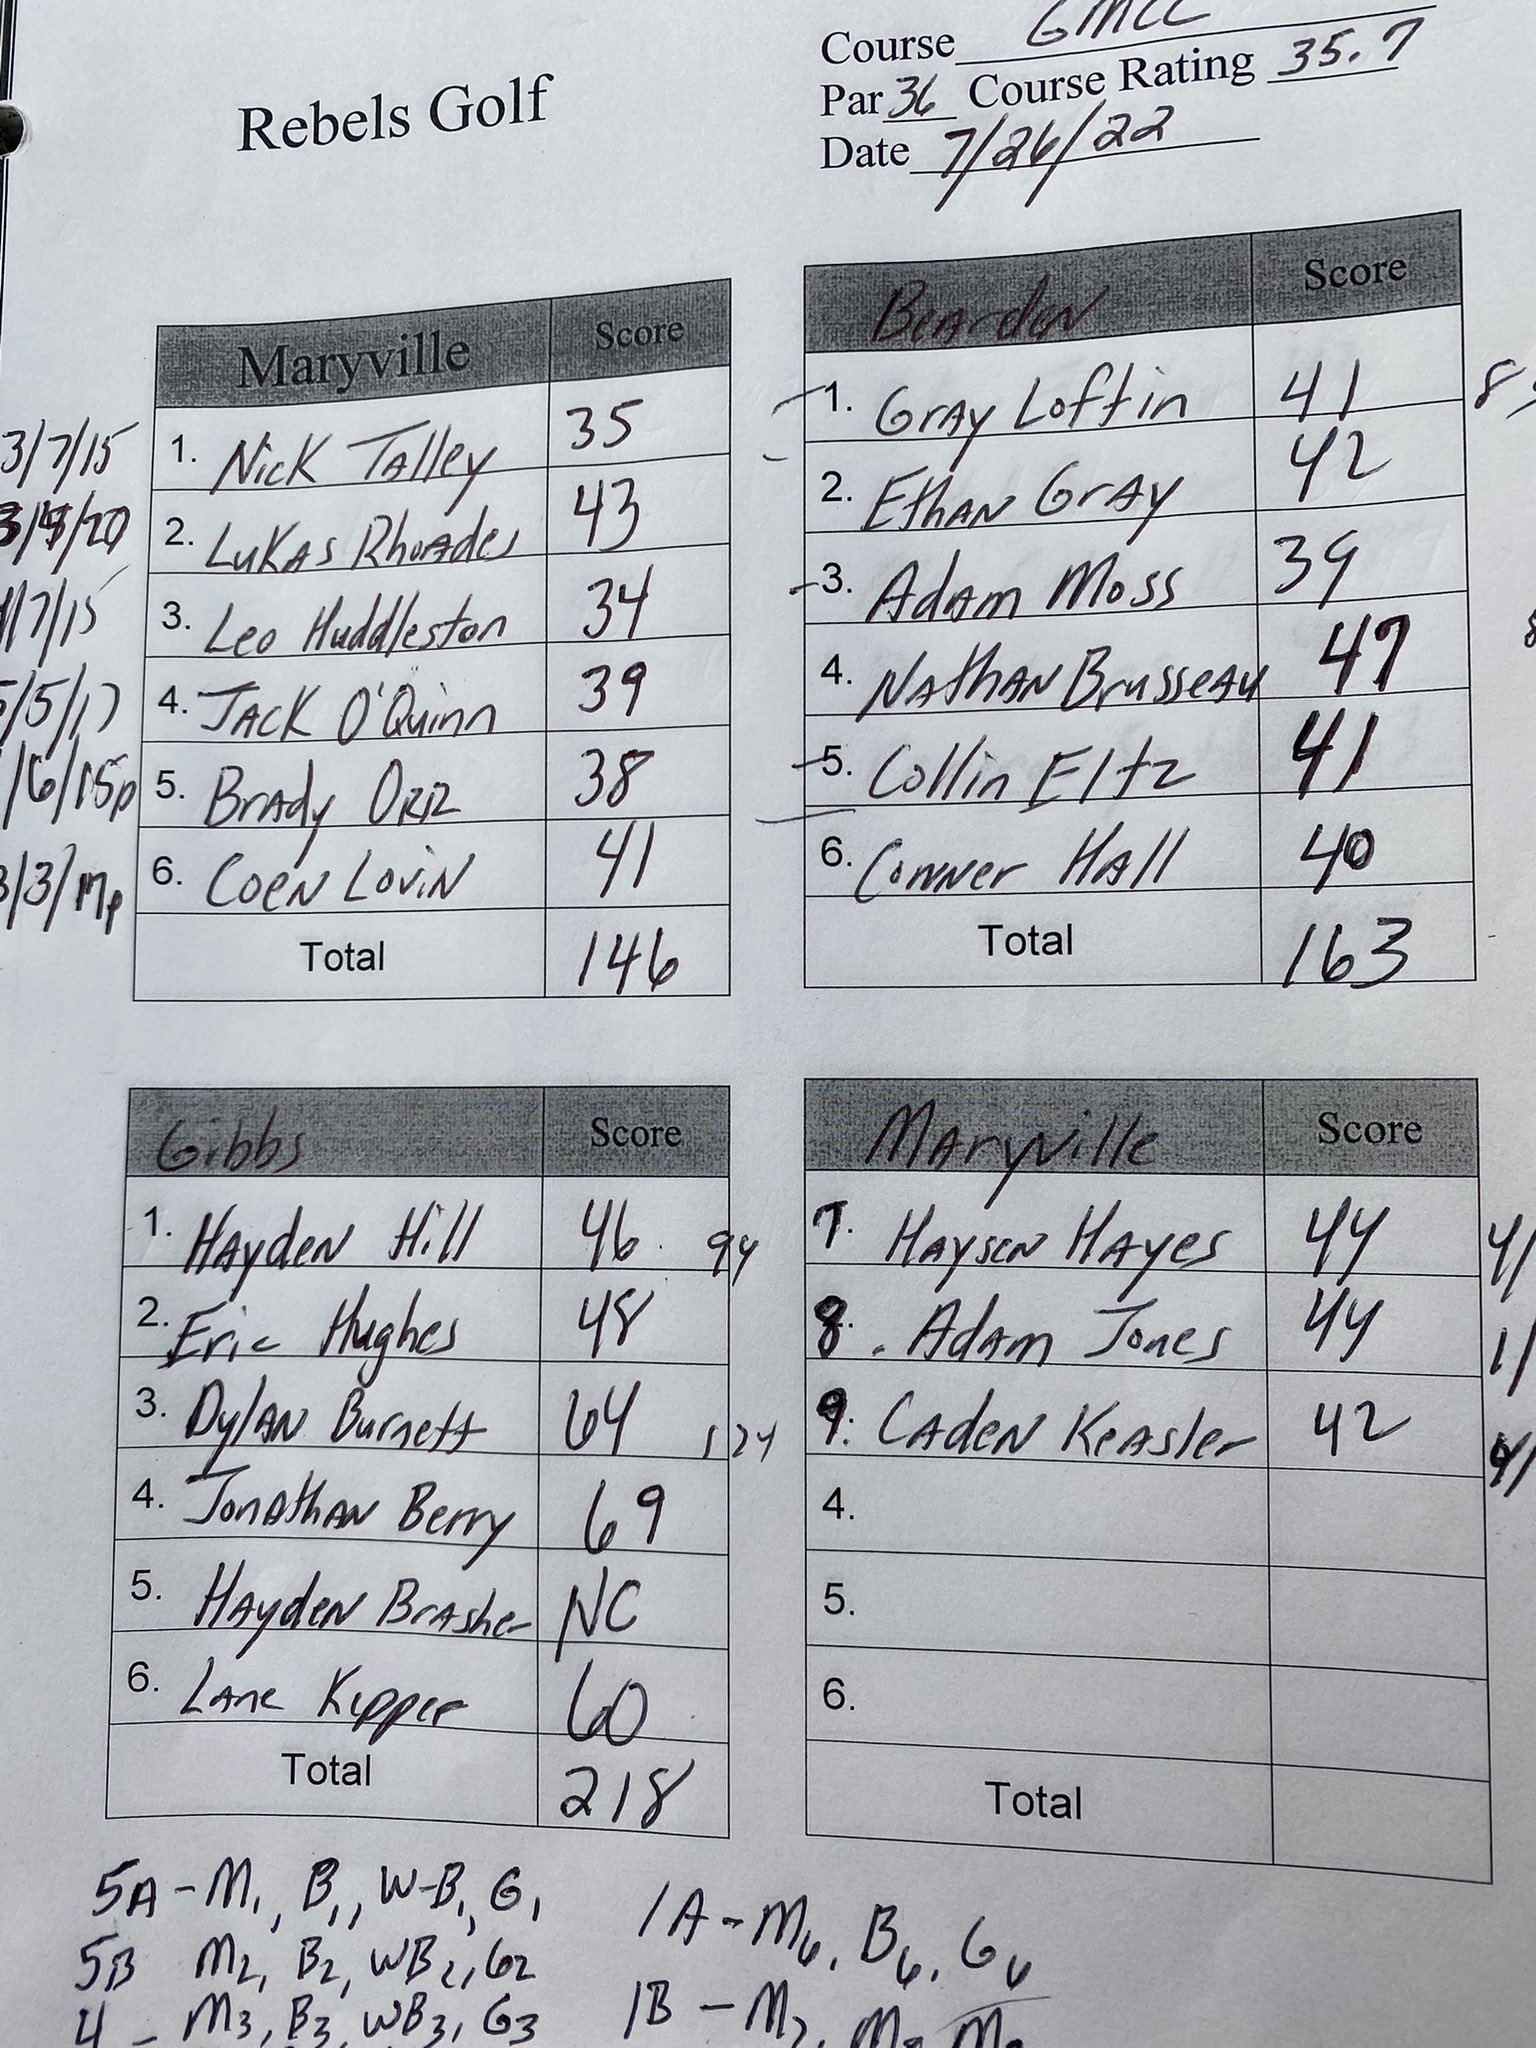 Rebels Golf
Course GMCC
Par 36 Course Rating 35.7
Date 7/26/22
Maryville Score
3/7/15 1. Nick Talley 35
2. Lukas Rhoades 43
7/15 3. Leo Huddleston 34
5/5/17 4. Jack O'Quinn 39
/6/15p 5. Brady 38
3/3/Mp 6. Coen Lovin 41
Total 146
Bearden Score
1. Gray Loftin 41
2. Ethan Gray 42
3. Adam Moss 39
4. Nathan Brusseau 47
5. Collin Eltz 41
6. Conner Hall 40
Total 163
Gibbs Score
1. Hayden Hill 46 94
2. Eric Hughes 48
3. Dylan Burnett 64 124
4. Jonathan Berry 69
5. Hayden Brasher NC
6. Lane Kipper 60
Total 218
Maryville Score
7. Hayson Hayes 44 4/
8. Adam Jones 44 1/
9. Caden Keasler 42 4/
4.
5.
6.
Total
5A - M1, B1, W-B1, G1
5B M2, B2, WB2, G2
4 - M3, B3, WB3, G3
1A - M6, B6, G6
1B - M7,